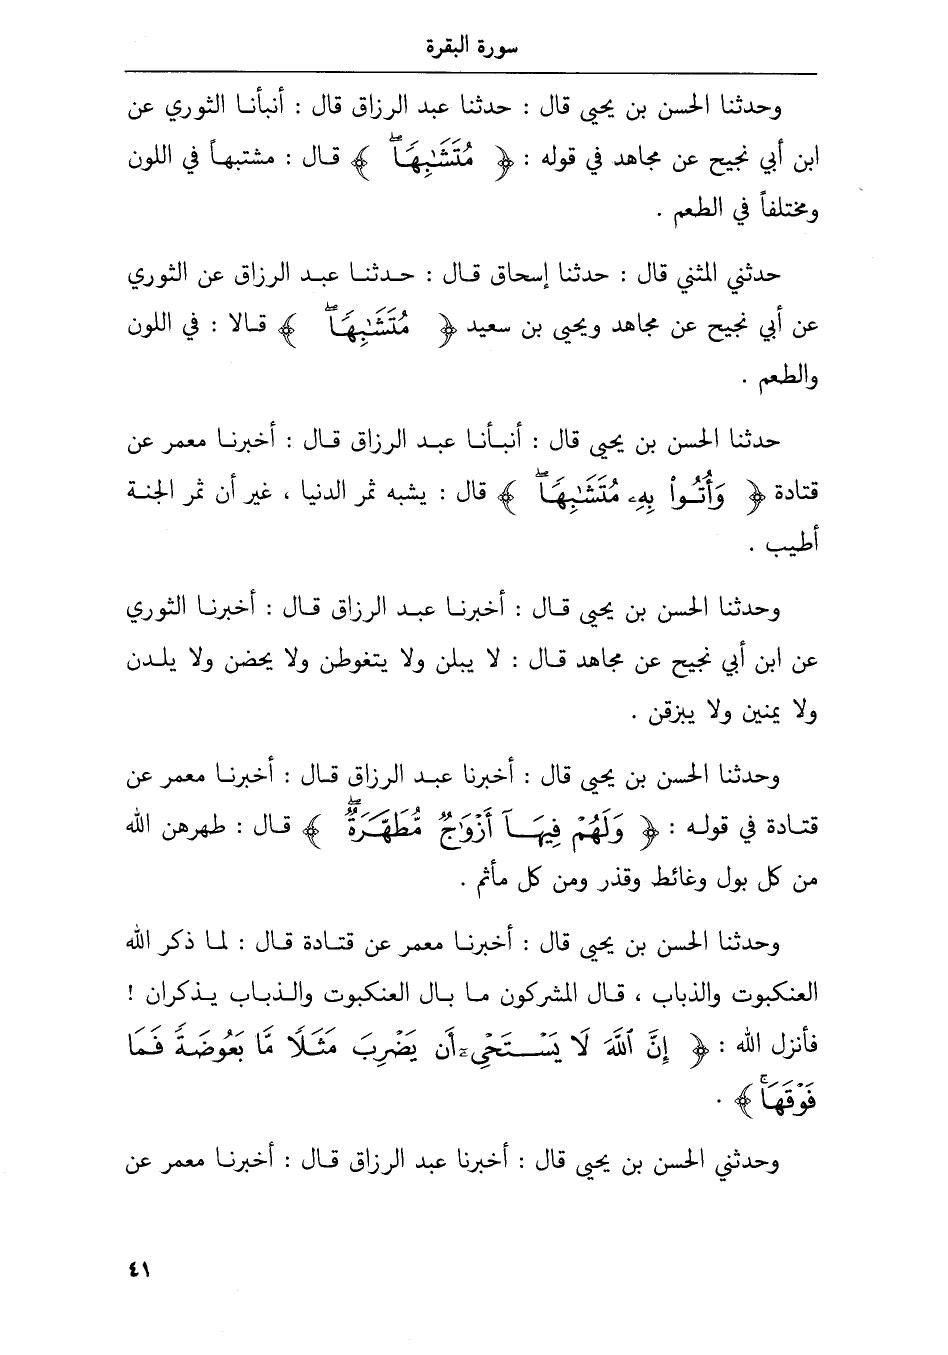 سورة البقرة
وحدثنا الحسن بن يحيى قال : حدثنا عبد الرزاق قال : أنبأنا الثوري عن
ابن أبي نجيح عن مجاهد في قوله : ﴿ مُتَشَٰبِهًا ۖ ﴾ قال : مشتبهاً في اللون
ومختلفاً في الطعم .
حدثني المثني قال : حدثنا إسحاق قال : حدثنا عبد الرزاق عن الثوري
عن أبي نجيح عن مجاهد ويحيى بن سعيد ﴿ مُتَشَٰبِهًا ۖ ﴾ قالا : في اللون
والطعم .
حدثنا الحسن بن يحيى قال : أنبأنا عبد الرزاق قال : أخبرنا معمر عن
قتادة ﴿ وَأُتُواْ بِهِۦ مُتَشَٰبِهًا ۖ ﴾ قال : يشبه ثمر الدنيا ، غير أن ثمر الجنة
أطيب .
وحدثنا الحسن بن يحيى قال : أخبرنا عبد الرزاق قال : أخبرنا الثوري
عن ابن أبي نجيح عن مجاهد قال : لا يبلن ولا يتغوطن ولا يحضن ولا يلدن
ولا يمنين ولا يبزقن .
وحدثنا الحسن بن يحيى قال : أخبرنا عبد الرزاق قال : أخبرنا معمر عن
قتادة في قوله : ﴿ وَلَهُمْ فِيهَآ أَزْوَٰجٌ مُّطَهَّرَةٌ ۖ ﴾ قال : طهرهن الله
من كل بول وغائط وقذر ومن كل مأثم .
وحدثنا الحسن بن يحيى قال : أخبرنا معمر عن قتادة قال : لما ذكر الله
العنكبوت والذباب ، قال المشركون ما بال العنكبوت والذباب يذكران !
فأنزل الله : ﴿ إِنَّ ٱللَّهَ لَا يَسْتَحْىِۦٓ أَن يَضْرِبَ مَثَلًا مَّا بَعُوضَةً فَمَا
فَوْقَهَا ۚ ﴾ .
وحدثني الحسن بن يحيى قال : أخبرنا عبد الرزاق قال : أخبرنا معمر عن
٤١